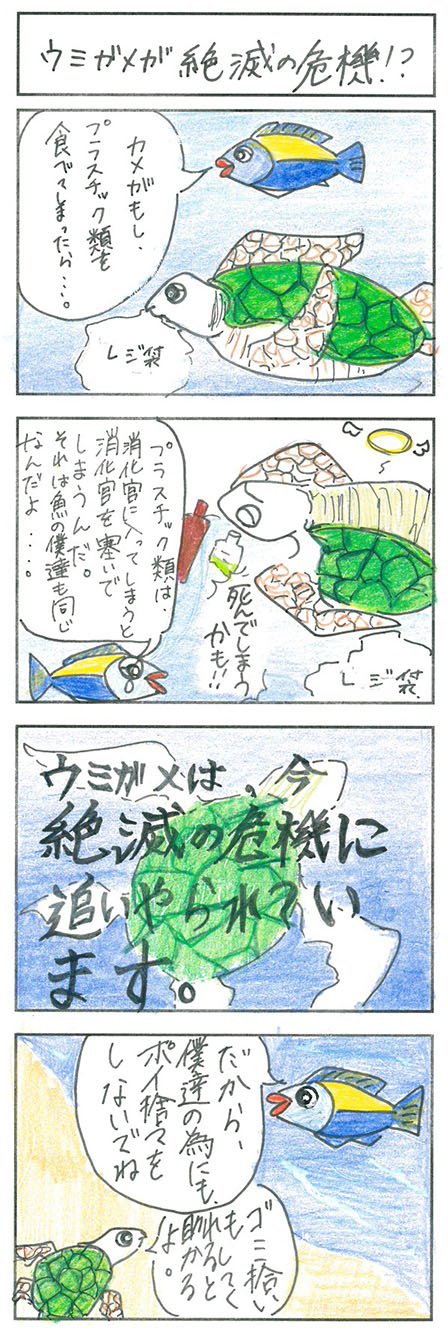 ウミガメが絶滅の危機!?
カメがもし、
プラスチック類を
食べてしまったら…。
レジ袋
プラスチック類は、
消化官に入ってしまうと
消化官を塞いで
しまうんだ。
それは魚の僕達も同じ
なんだよ…。
死んでしまう
かも!!
レジ袋
ウミガメは、今
絶滅の危機に
追いやられてい
ます。
だから、
僕達の為にも、
ポイ捨てを
しないでね
ゴミ拾い
もしてく
れると
助かる
よ。